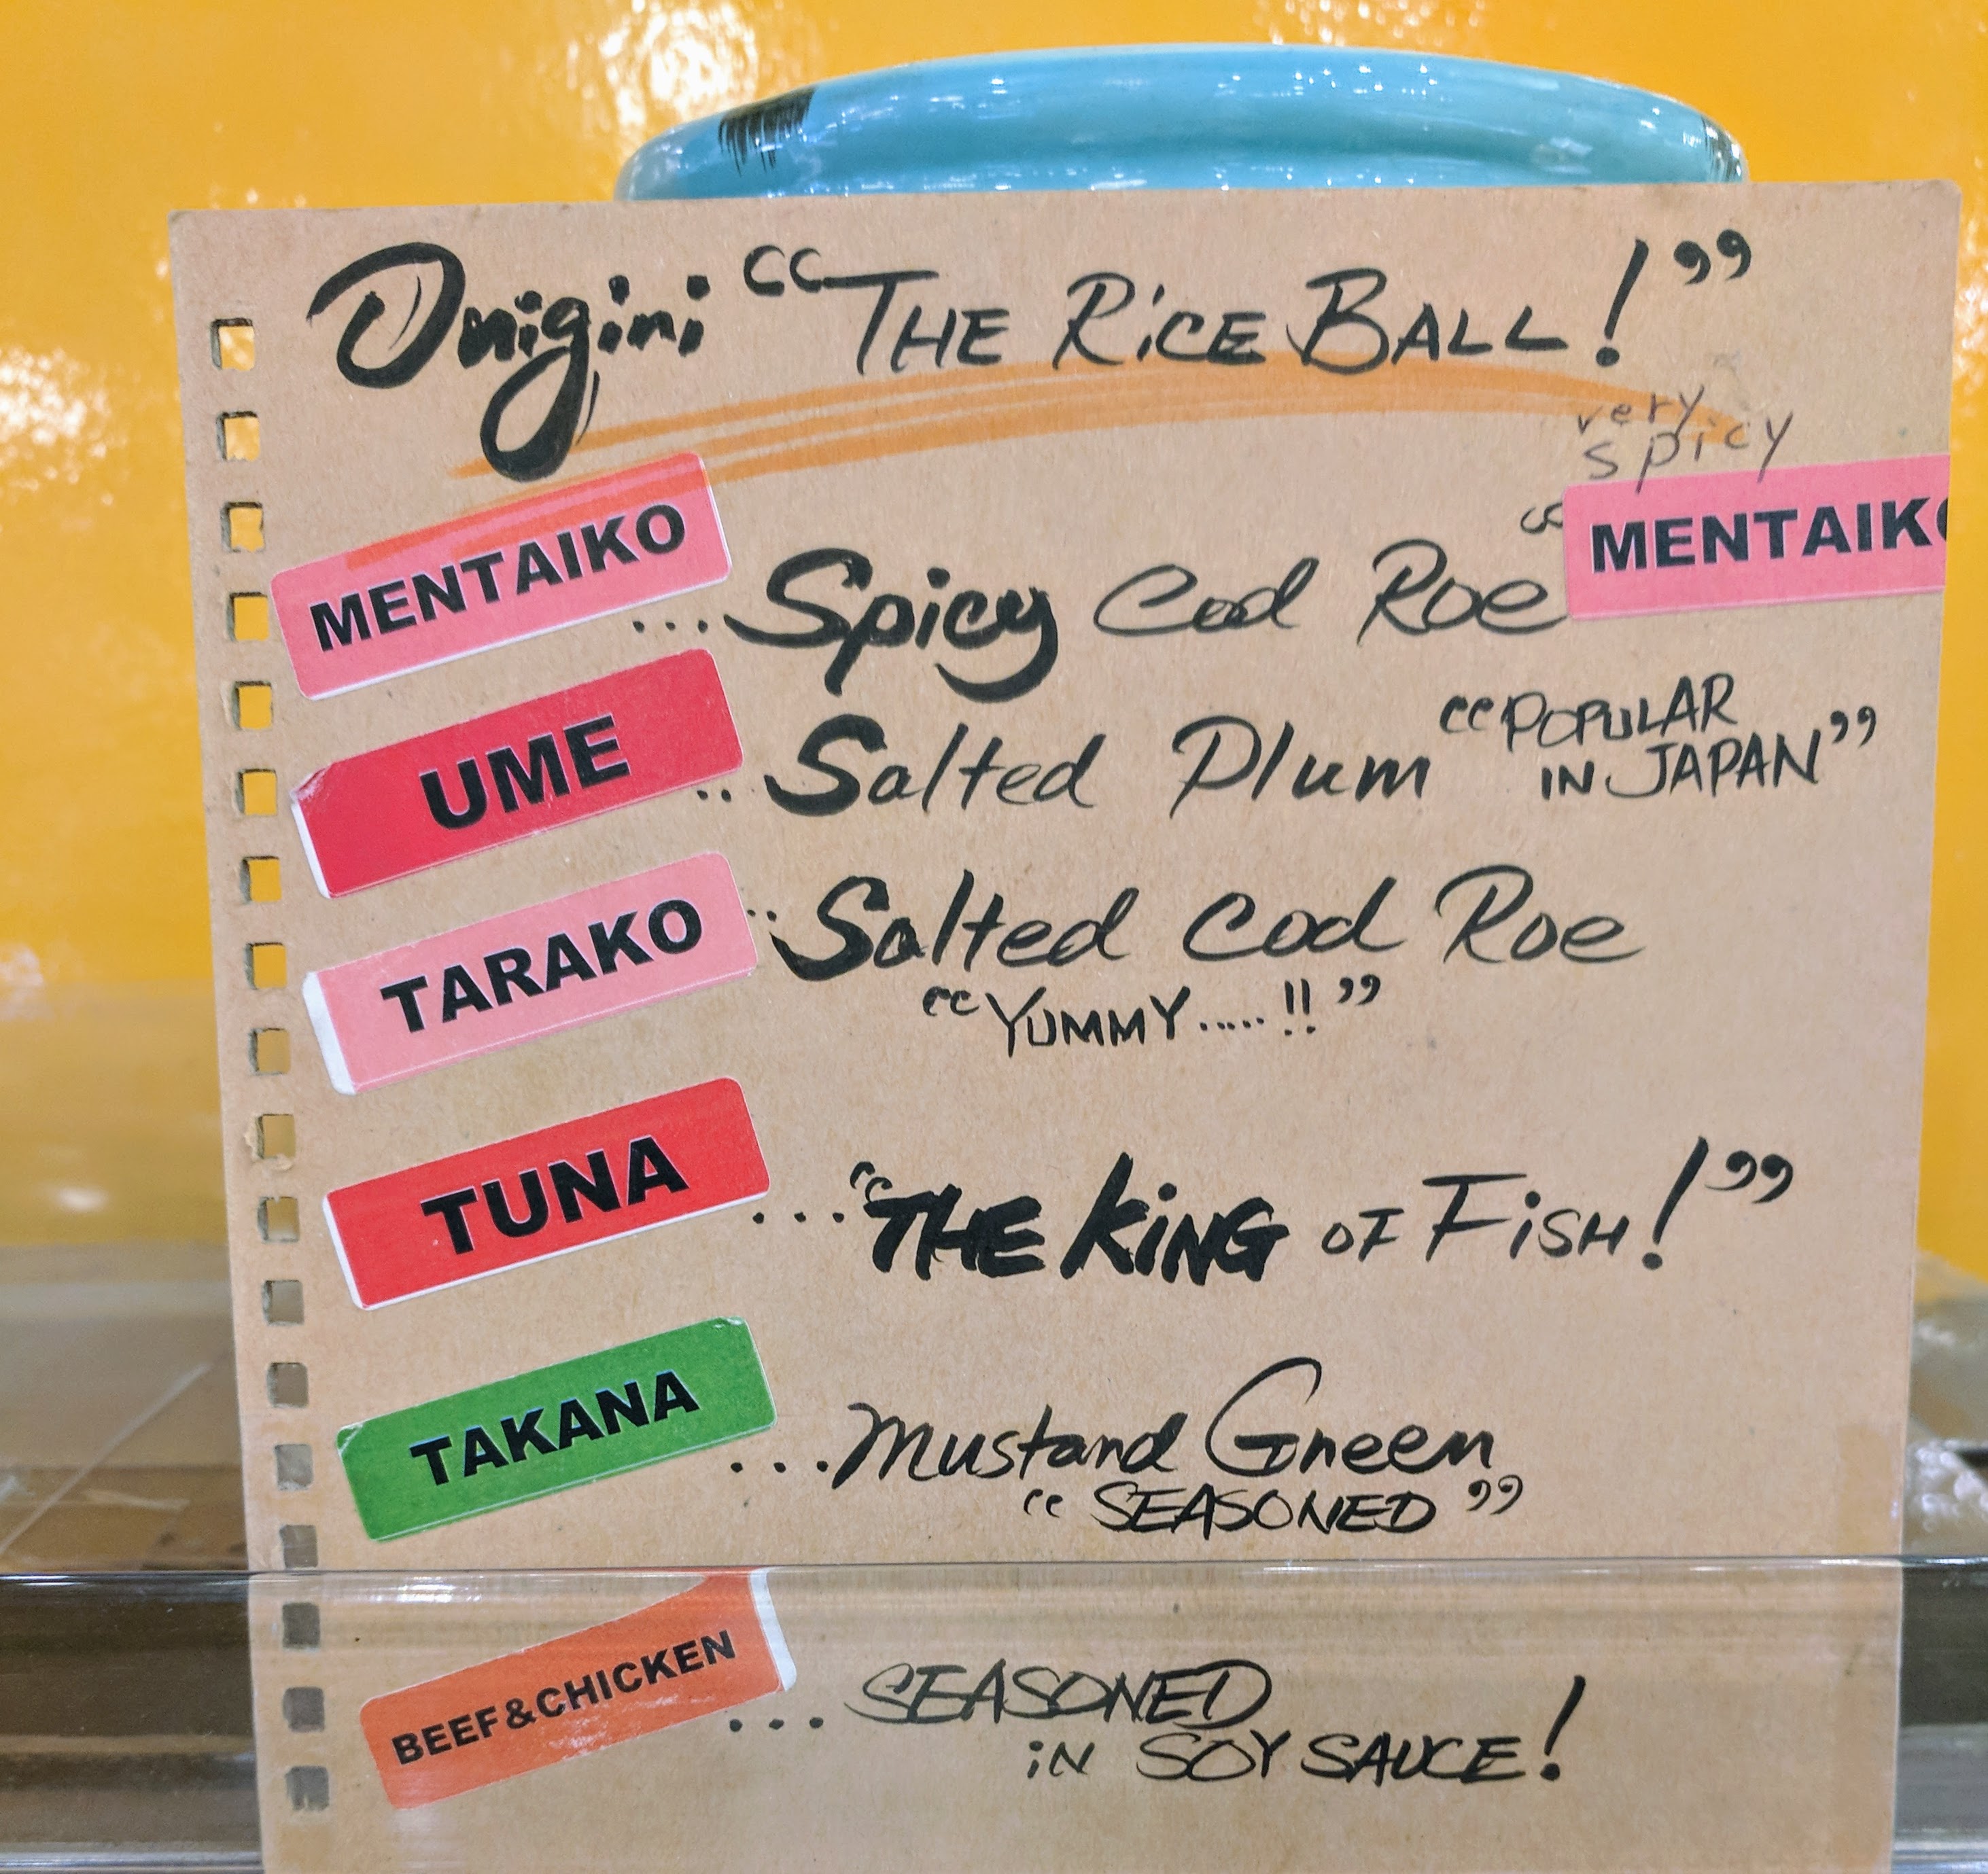 Onigini "THE RiCE BALL!"
very
spicy
MENTAIKO ...Spicy Cod Roe MENTAIK
UME ..Salted Plum "POPULAR
IN JAPAN"
TARAKO ..Salted Cod Roe
"YUMMY.....!!"
TUNA ..."THE KiNG OF FiSH!"
TAKANA ...Mustand Gneen
"SEASONED"
BEEF&CHICKEN ...SEASONED
iN SOY SAUCE!